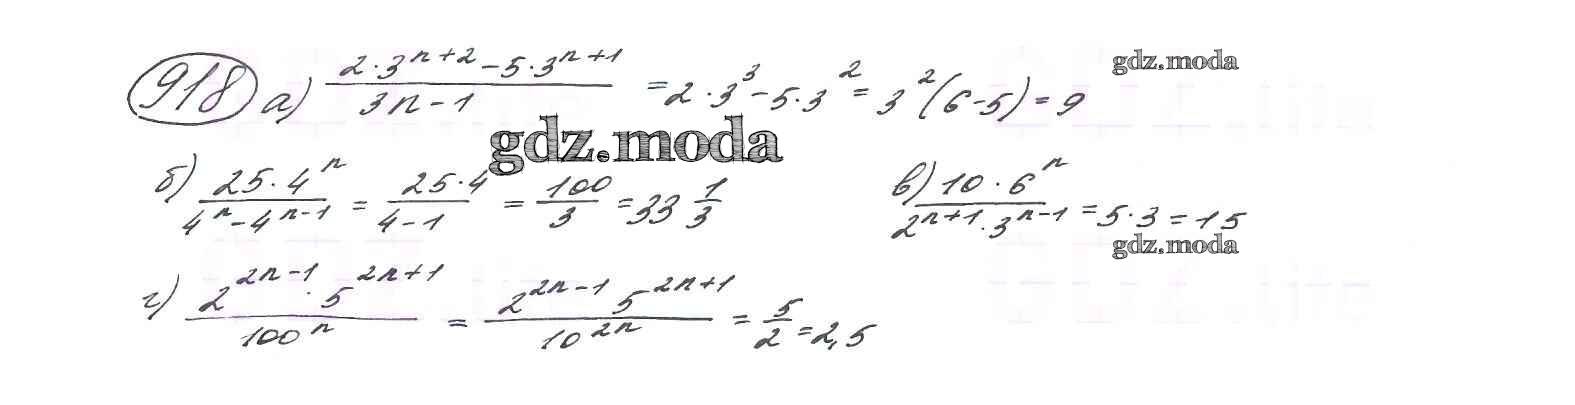 918 а) (2·3^(n+2) − 5·3^(n+1)) / (3n−1) = 2·3^3 − 5·3^2 = 3^2(6−5) = 9
gdz.moda
gdz.moda
б) (25·4^n) / (4^n − 4^(n−1)) = (25·4) / (4−1) = 100/3 = 33 1/3
в) (10·6^n) / (2^(n+1)·3^(n−1)) = 5·3 = 15
gdz.moda
г) (2^(2n−1)·5^(2n+1)) / 100^n = (2^(2n−1) 5^(2n+1)) / 10^(2n) = 5/2 = 2,5